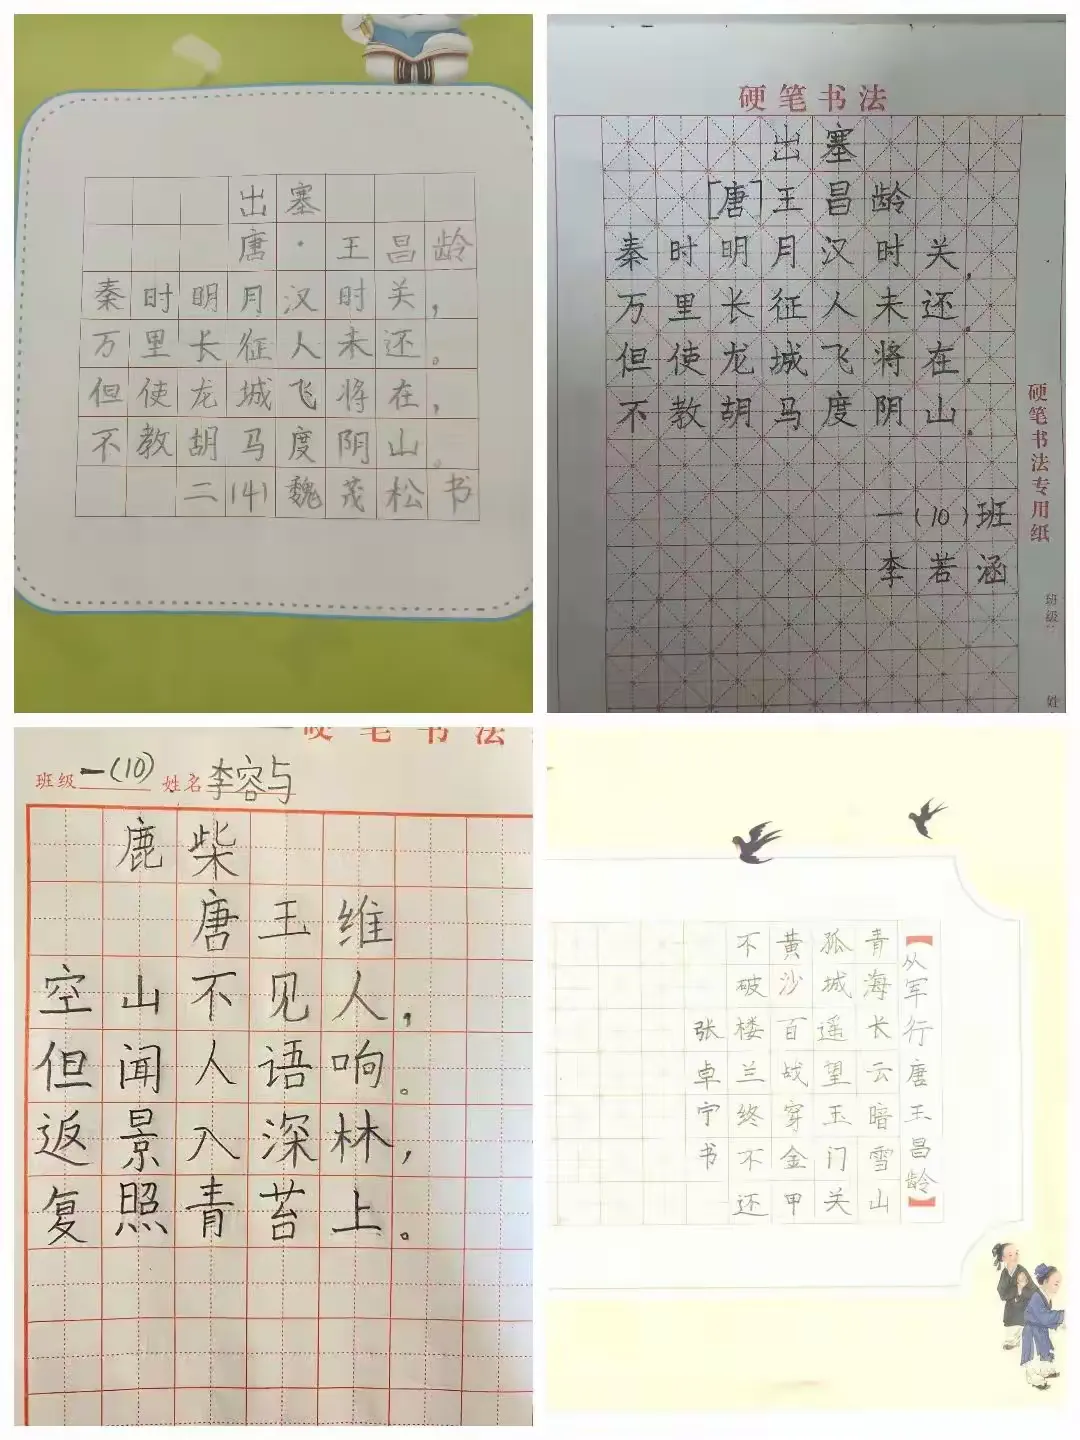 出塞
唐·王昌龄
秦时明月汉时关，
万里长征人未还。
但使龙城飞将在，
不教胡马度阴山。
二(4)魏茂松书
硬笔书法
出塞
[唐]王昌龄
秦时明月汉时关，
万里长征人未还。
但使龙城飞将在，
不教胡马度阴山。
一(10)班
李若涵
硬笔书法专用纸
班级：
姓
硬笔书法
班级一(10) 姓名李容与
鹿柴
唐王维
空山不见人，
但闻人语响。
返景入深林，
复照青苔上。
【从军行唐王昌龄】
青海长云暗雪山
孤城遥望玉门关
黄沙百战穿金甲
不破楼兰终不还
张卓宁书